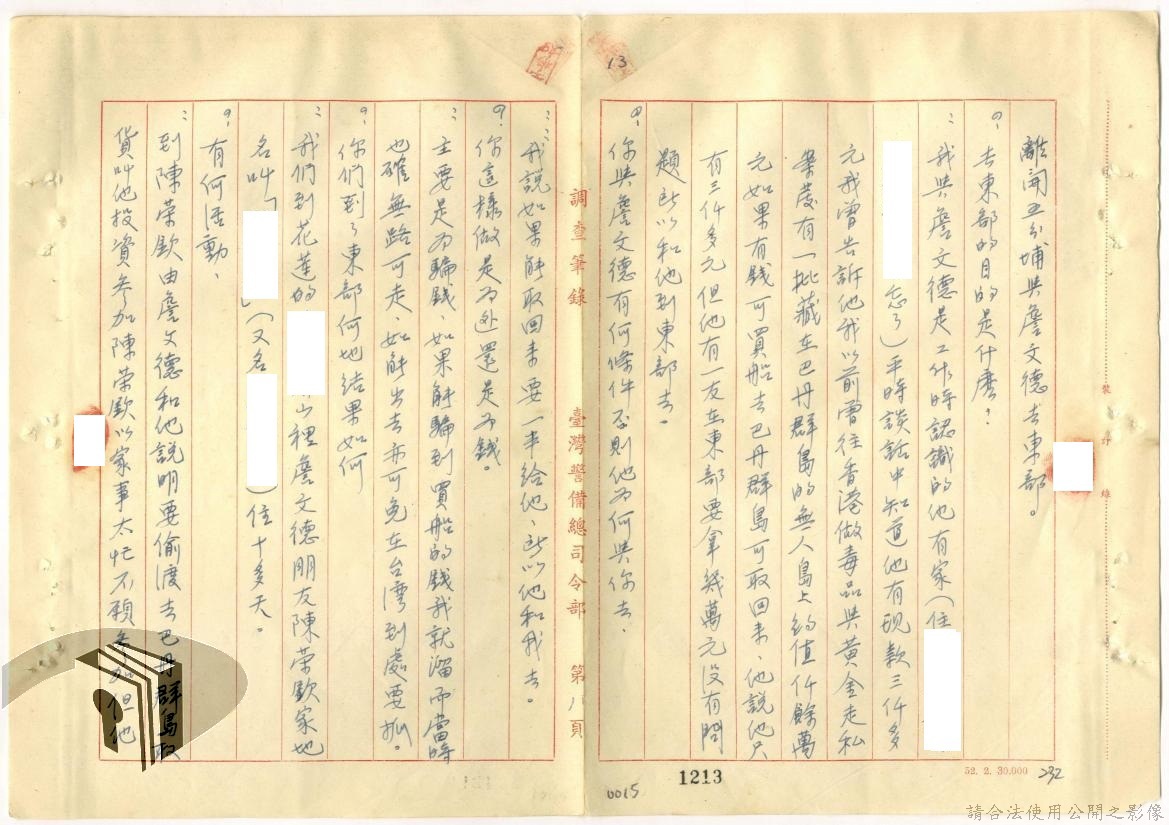 離開五分埔與詹文德去東部。
9. 去東部的目的是什麼?
: 我與詹文德是工作時認識的他有家(住
忘了)平時談話中知道他有現款三仟多
元我曾告訴他我以前曾往香港做毒品與黃金走私
業荗有一批藏在巴丹群島的無人島上約值仟餘萬
元如果有錢可買船去巴丹群島可取回來、他說他只
有三仟多元但他有一友在東部要拿幾萬元沒有問
題所以和他到東部去。
9. 你與詹文德有何條件否則他為何與你去.
調查筆錄 臺灣警備總司令部 第八頁
: 我說如果能取回來要一半給他、所以他和我去。
9. 你這樣做是為处還是為錢。
: 主要是為騙錢、如果能騙到買船的錢我就溜而當時
也確無路可走、如能出去亦可免在台灣到處要抓。
9. 你們到了東部何地結果如何
: 我們到花蓮的 山裡詹文德朋友陳荣欽家他
名叫「 」(又名 )住十多天。
9. 有何活動、
: 到陳荣欽由詹文德和他說明要偷渡去巴丹群島取
貨叫他投資参加陳荣欽以家事太忙不願参加但他
13
裝 訂 線
52. 2. 30.000
232
1213
0015
請合法使用公開之影像